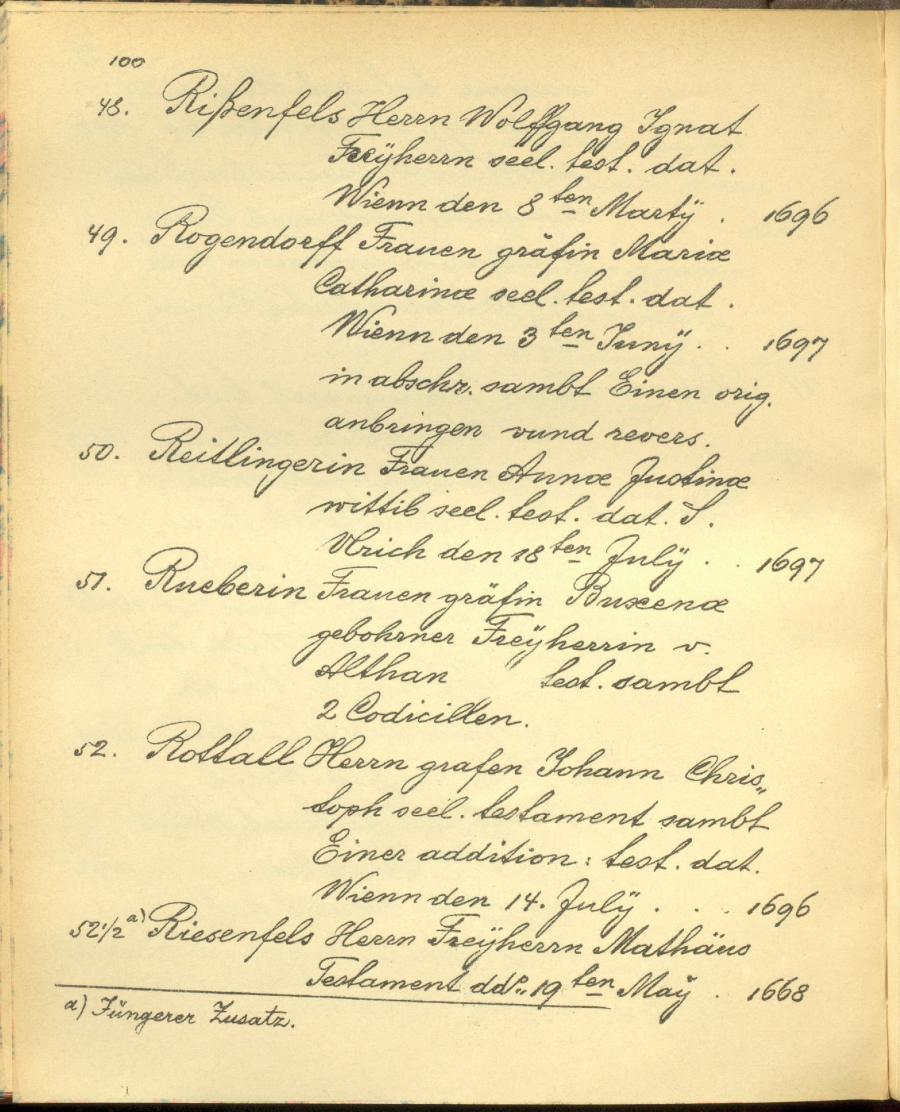 100
48. Rißenfels Herrn Wolffgang Ignat
Freÿherrn seel. test. dat.
Wienn den 8ten Martÿ . 1696
49. Rogendorff Frauen gräfin Mariæ
Catharinæ seel. test. dat.
Wienn den 3ten Junÿ . . 1697
in abschr. sambt Einen orig.
anbringen vund revers.
50. Reitlingerin Frauen Annæ Justinæ
wittib seel. test. dat. S.
Ulrich den 18ten Julÿ . . 1697
51. Rueberin Frauen gräfin Buxenæ
gebohrner Freÿherrin v.
Althan test. sambt
2 Codicillen.
52. Rottall Herrn grafen Johann Chris„
toph seel. testament sambt
Einer addition : test. dat.
Wienn den 14. Julÿ . . . 1696
52 1/2 a) Riesenfels Herrn Freÿherrn Mathäus
Testament ddo. 19ten Maÿ . 1668
a) Jüngerer Zusatz.